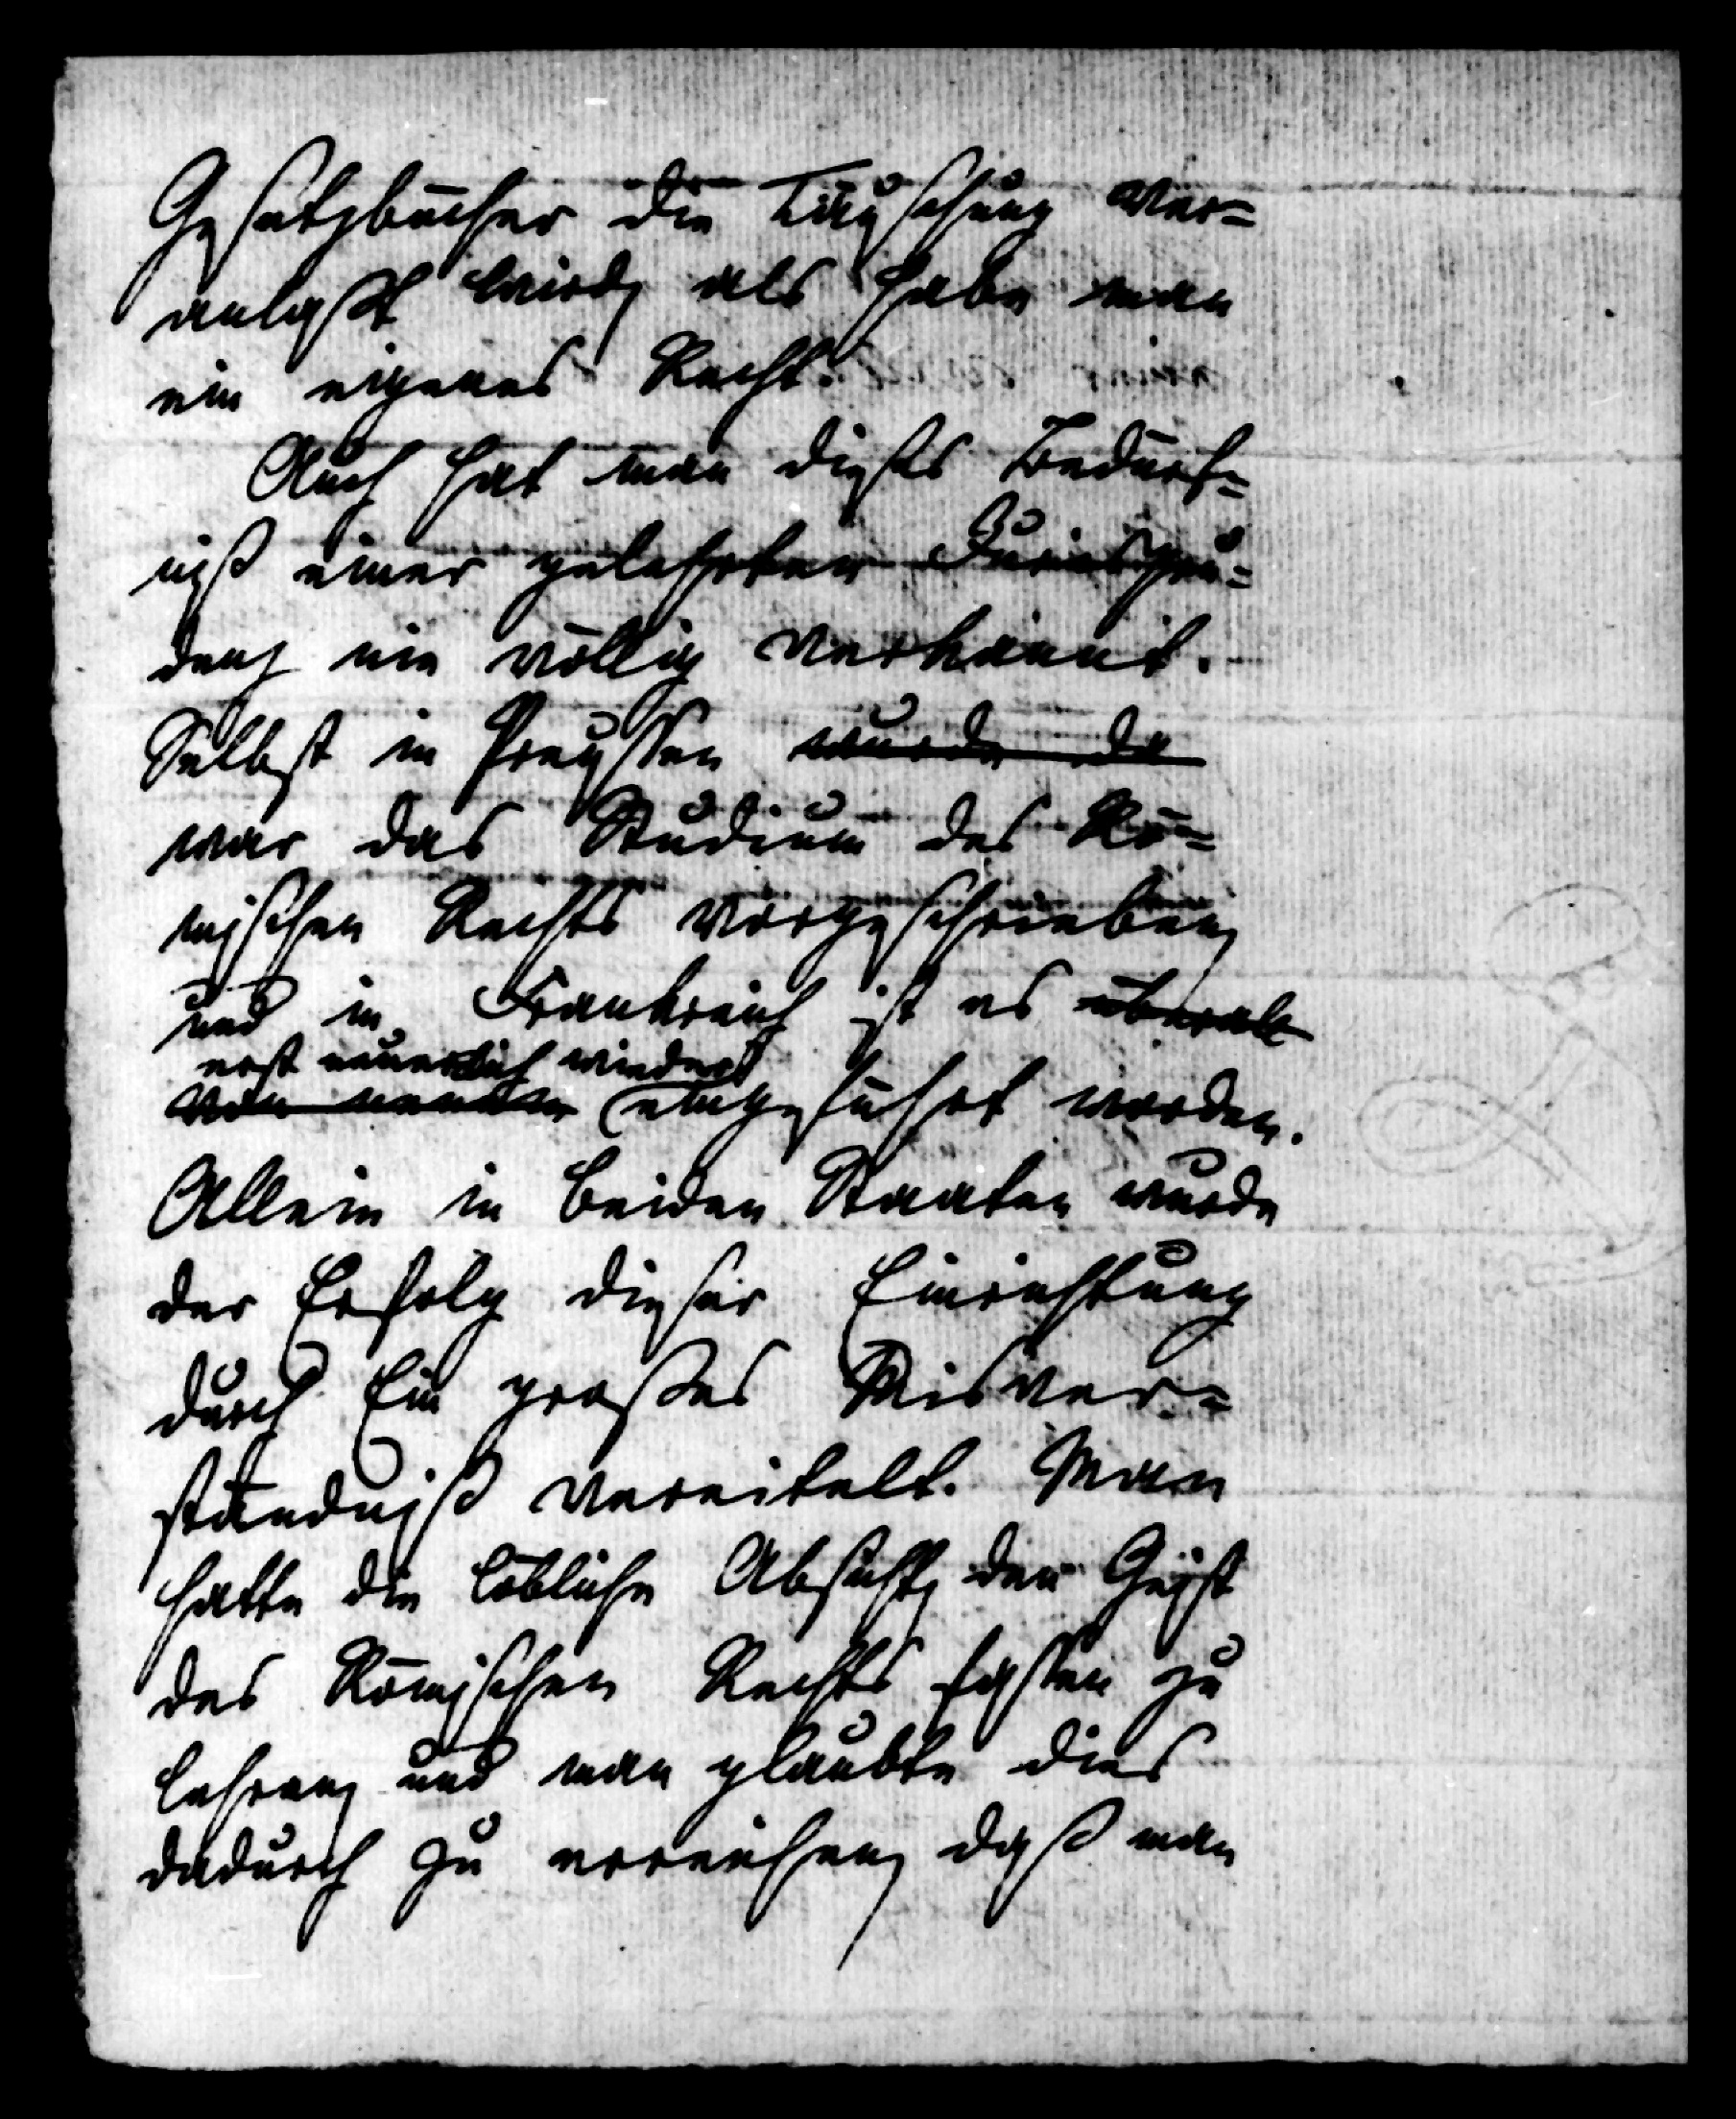 Gesetzbücher die Täuschung ver=
anlaßt wird, als habe man
ein eigenes Recht.
Auch hat man dieses Bedürf=
niß einer gelehrten Jurispru=
denz nie völlig verkannt.
Selbst in Preussen wurde da
war das Studium des Rö=
mischen Rechts vorgeschrieben,
und in Frankreich ist es überall
erst neuerlich wieder
von neuem eingeführt worden.
Allein in beiden Staaten wurde
der Erfolg dieser Einrichtung
durch Ein großes Misver=
ständniß vereitelt. Man
hatte die löbliche Absicht, den Geist
des Römischen Rechts fassen zu
lehren, und man glaubte dies
dadurch zu erreichen, daß man